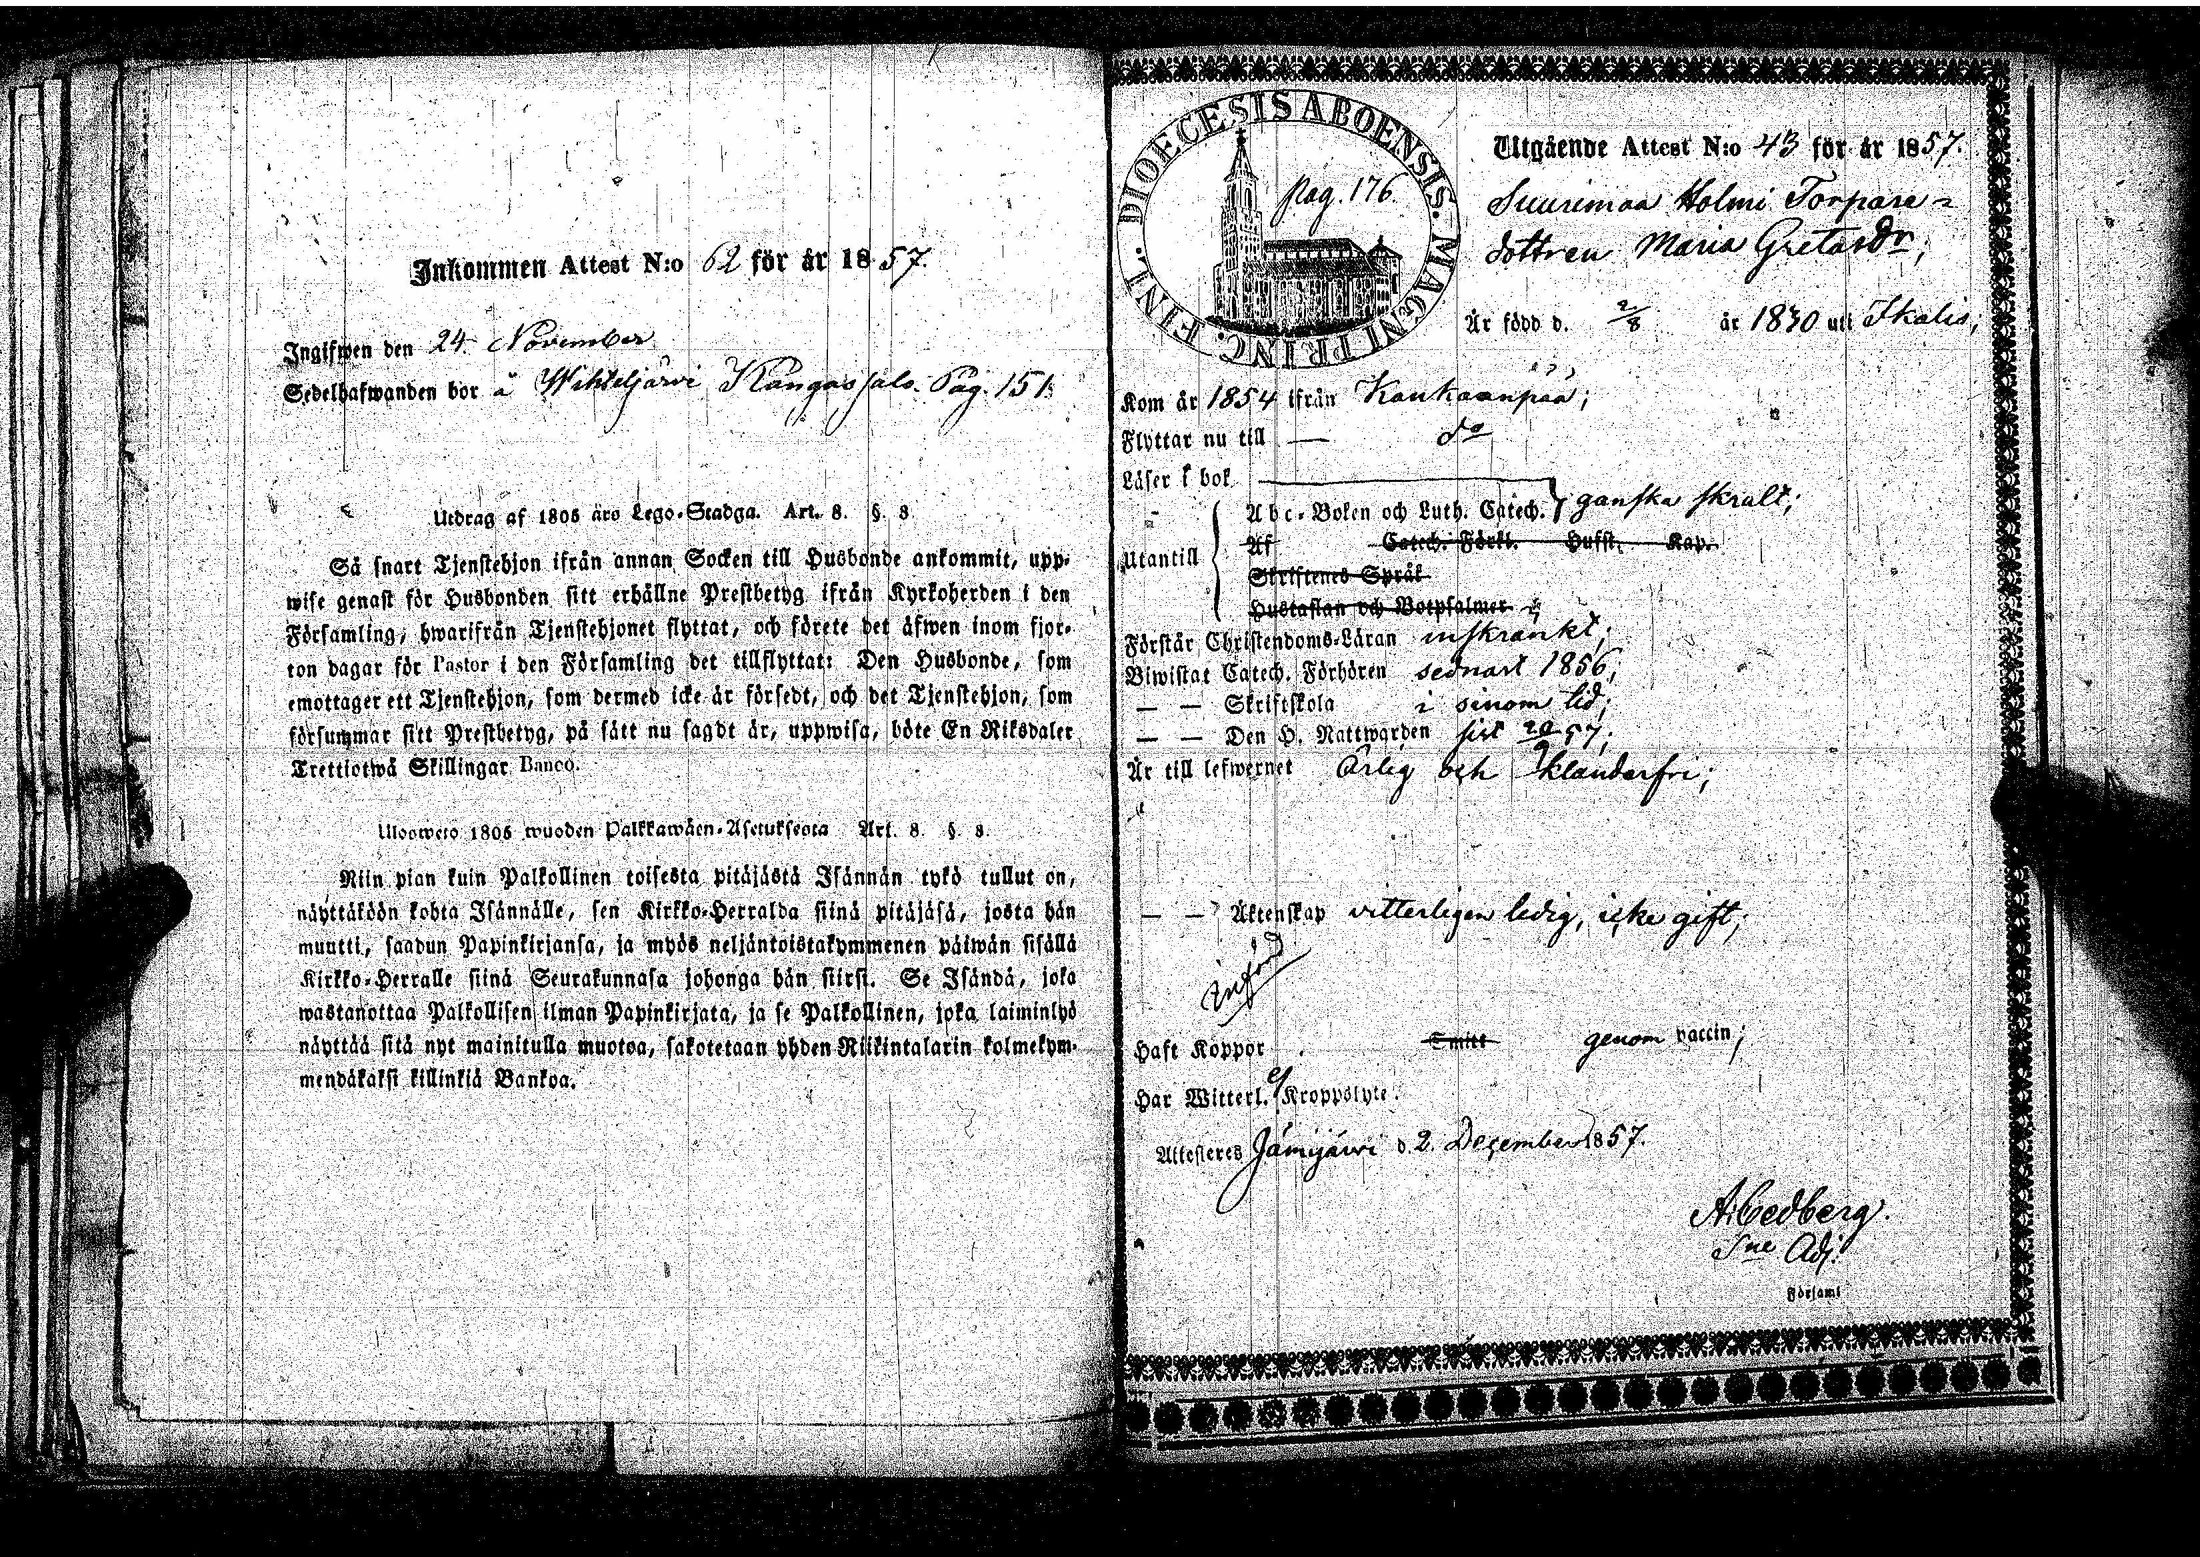 Inkommen Attest N:o 62 för år 1857.
Ingifwen den 24. November
Sedelhafwanden bor å Wihteljärvi Kangasjals. Pag. 151.
Utdrag af 1805 års Lego-Stadga. Art. 8. §. 8.
Så snart Tjenstehjon ifrån annan Socken till Husbonde ankommit, upp-
wise genast för Husbonden sitt erhållne Prestbetyg ifrån Kyrkoherden i den
Församling, hwarifrån Tjenstehjonet flyttat, och förete det äfwen inom fjor-
ton dagar för Pastor i den Församling det tillflyttat: Den Husbonde, som
emottager ett Tjenstehjon, som dermed icke är försedt, och det Tjenstehjon, som
försummar sitt Prestbetyg, på sätt nu sagdt är, uppwisa, böte En Riksdaler
Trettiotwå Skillingar Banco.
Uloosweto 1805 wuoden Palkkawäen-Asetuksesta Art. 8. §. 8.
Niin pian kuin Palkollinen toisesta pitäjästä Isännän tykö tullut on,
näyttäköön kohta Isännälle, sen Kirkko-Herralda siinä pitäjäsä, josta hän
muutti, saadun Papinkirjansa, ja myös neljäntoistakymmenen päiwän sisällä
Kirkko-Herralle siinä Seurakunnasa johonga hän siirsi. Se Isändä, joka
wastanottaa Palkollisen ilman Papinkirjata, ja se Palkollinen, joka laiminlyö
näyttää sitä nyt mainitulla muotoa, sakotetaan yhden Riikintalarin kolmekym-
mendäkaksi killinkiä Bankoa.
DIOECESIS ABOENSIS. MAGNI PRINC. FINL.
Pag. 176
Utgående Attest N:o 43 för år 1857.
Suurimaa Holmi Torpare-
dottren Maria Gretasdr,
Är född d. 2/8 år 1830 uti Ikalis,
Kom år 1854 ifrån Kankaanpää;
Flyttar nu till — do
Läser i bok
Abc-Boken och Luth. Catech. ganska skralt;
Utantill
Af Catech. Förkl. Husst. Kap.
Skriftenes Språk
Hustaflan och Botpsalmer
Förstår Christendoms-Läran inskränkt;
Biwistat Catech. Förhören sednast 1856;
— — Skriftskola i sinom tid;
— — Den H. Nattwarden sist 20/9 57;
Är till lefwernet Ärlig och klanderfri;
— — Äktenskap vitterligen ledig, icke gift;
införd
Haft Koppor Smitt genom vaccin;
Har Witterl. ej Kroppslyte.
Attesteres Jämijärvi d. 2. December 1857.
A. Cedberg.
Sne Adj.
Församl